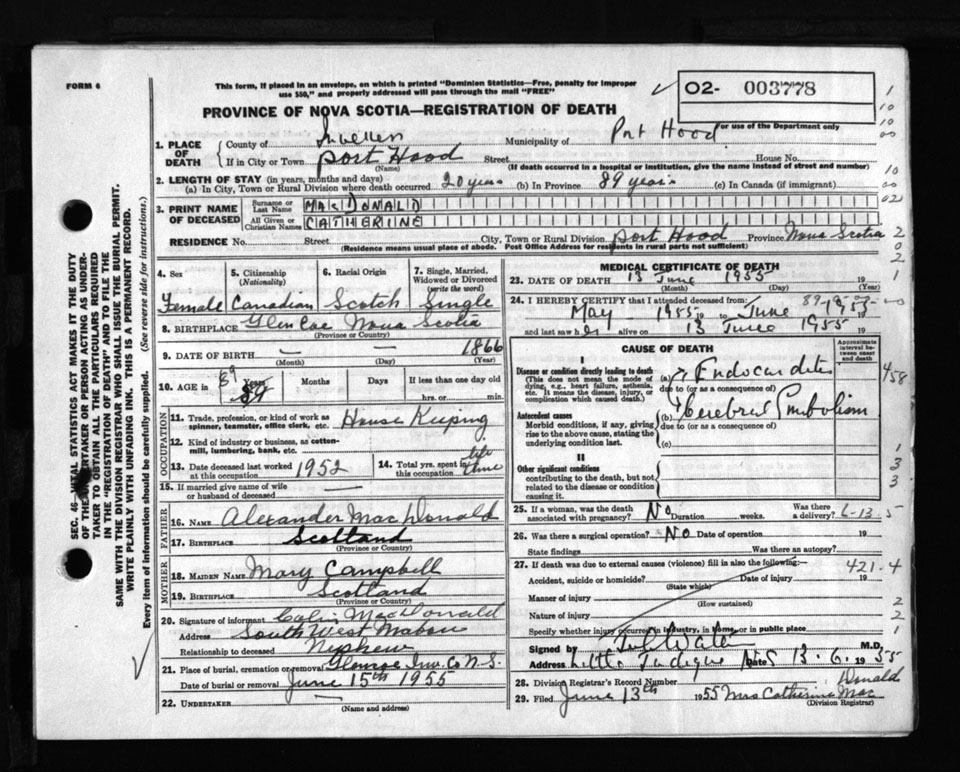 FORM 6
This form, if placed in an envelope, on which is printed "Dominion Statistics—Free, penalty for improper
use $50," and properly addressed will pass through the mail "FREE"
PROVINCE OF NOVA SCOTIA—REGISTRATION OF DEATH
O2- 003778
For use of the Department only
1. PLACE OF DEATH
County of Inverness Municipality of Port Hood
If in City or Town Port Hood Street House No.
(Name) (If death occurred in a hospital or institution, give the name instead of street and number)
2. LENGTH OF STAY (in years, months and days)
(a) In City, Town or Rural Division where death occurred 20 years (b) In Province 89 years (c) In Canada (if immigrant)
3. PRINT NAME OF DECEASED
Surname or Last Name MACDONALD
All Given or Christian Names CATHERINE
RESIDENCE No. Street City, Town or Rural Division Port Hood Province Nova Scotia
(Residence means usual place of abode. Post Office Address for residents in rural parts not sufficient)
4. Sex 5. Citizenship (Nationality) 6. Racial Origin 7. Single, Married, Widowed or Divorced (write the word)
Female Canadian Scotch Single
8. BIRTHPLACE Glencoe Nova Scotia
(Province or Country)
9. DATE OF BIRTH 1866
(Month) (Day) (Year)
10. AGE in 89 Years Months Days If less than one day old
hrs. or min.
OCCUPATION
11. Trade, profession, or kind of work as
spinner, teamster, office clerk, etc. House Keeping
12. Kind of industry or business, as cotton-
mill, lumbering, bank, etc.
13. Date deceased last worked at this occupation 1952 14. Total yrs. spent in this occupation life time
15. If married give name of wife
or husband of deceased
FATHER
16. NAME Alexander MacDonald
17. BIRTHPLACE Scotland
(Province or Country)
MOTHER
18. MAIDEN NAME Mary Campbell
19. BIRTHPLACE Scotland
(Province or Country)
20. Signature of informant Colin MacDonald
Address South West Mabou
Relationship to deceased Nephew
21. Place of burial, cremation or removal Glencoe Inv. Co N.S.
Date of burial or removal June 15th 1955
22. UNDERTAKER
(Name and address)
MEDICAL CERTIFICATE OF DEATH
23. DATE OF DEATH 13 June 1955 19
(Month) (Day)
24. I HEREBY CERTIFY that I attended deceased from:
May 1955 19 to June 1955 19
and last saw her alive on 13 June 1955 19
CAUSE OF DEATH
Approximate interval between onset and death
I
Disease or condition directly leading to death
(This does not mean the mode of
dying, e.g., heart failure, asthenia,
etc. It means the disease, injury, or
complication which caused death.)
(a) Endocarditis
due to (or as a consequence of)
Antecedent causes
Morbid conditions, if any, giving
rise to the above cause, stating the
underlying condition last.
(b) Cerebral Embolism
due to (or as a consequence of)
(c)
II
Other significant conditions
contributing to the death, but not
related to the disease or condition
causing it.
25. If a woman, was the death associated with pregnancy? No Duration weeks. Was there a delivery? 6-13-5
26. Was there a surgical operation? No Date of operation 19
State findings Was there an autopsy?
27. If death was due to external causes (violence) fill in also the following:— 421.4
Accident, suicide or homicide? Date of injury 19
(State which)
Manner of injury
(How sustained)
Nature of injury
Specify whether injury occurred in industry, in home, or in public place
Signed by M.D.
Address Date 13.6.1955
28. Division Registrar's Record Number
29. Filed June 13th 1955 Mrs Catherine MacDonald
(Division Registrar)
SEC. 46—VITAL STATISTICS ACT MAKES IT THE DUTY
OF THE UNDERTAKER OR PERSON ACTING AS UNDER-
TAKER TO OBTAIN ALL THE PARTICULARS REQUIRED
IN THE "REGISTRATION OF DEATH" AND TO FILE THE
SAME WITH THE DIVISION REGISTRAR WHO SHALL ISSUE THE BURIAL PERMIT.
WRITE PLAINLY WITH UNFADING INK. THIS IS A PERMANENT RECORD.
Every item of information should be carefully supplied. (See reverse side for instructions.)